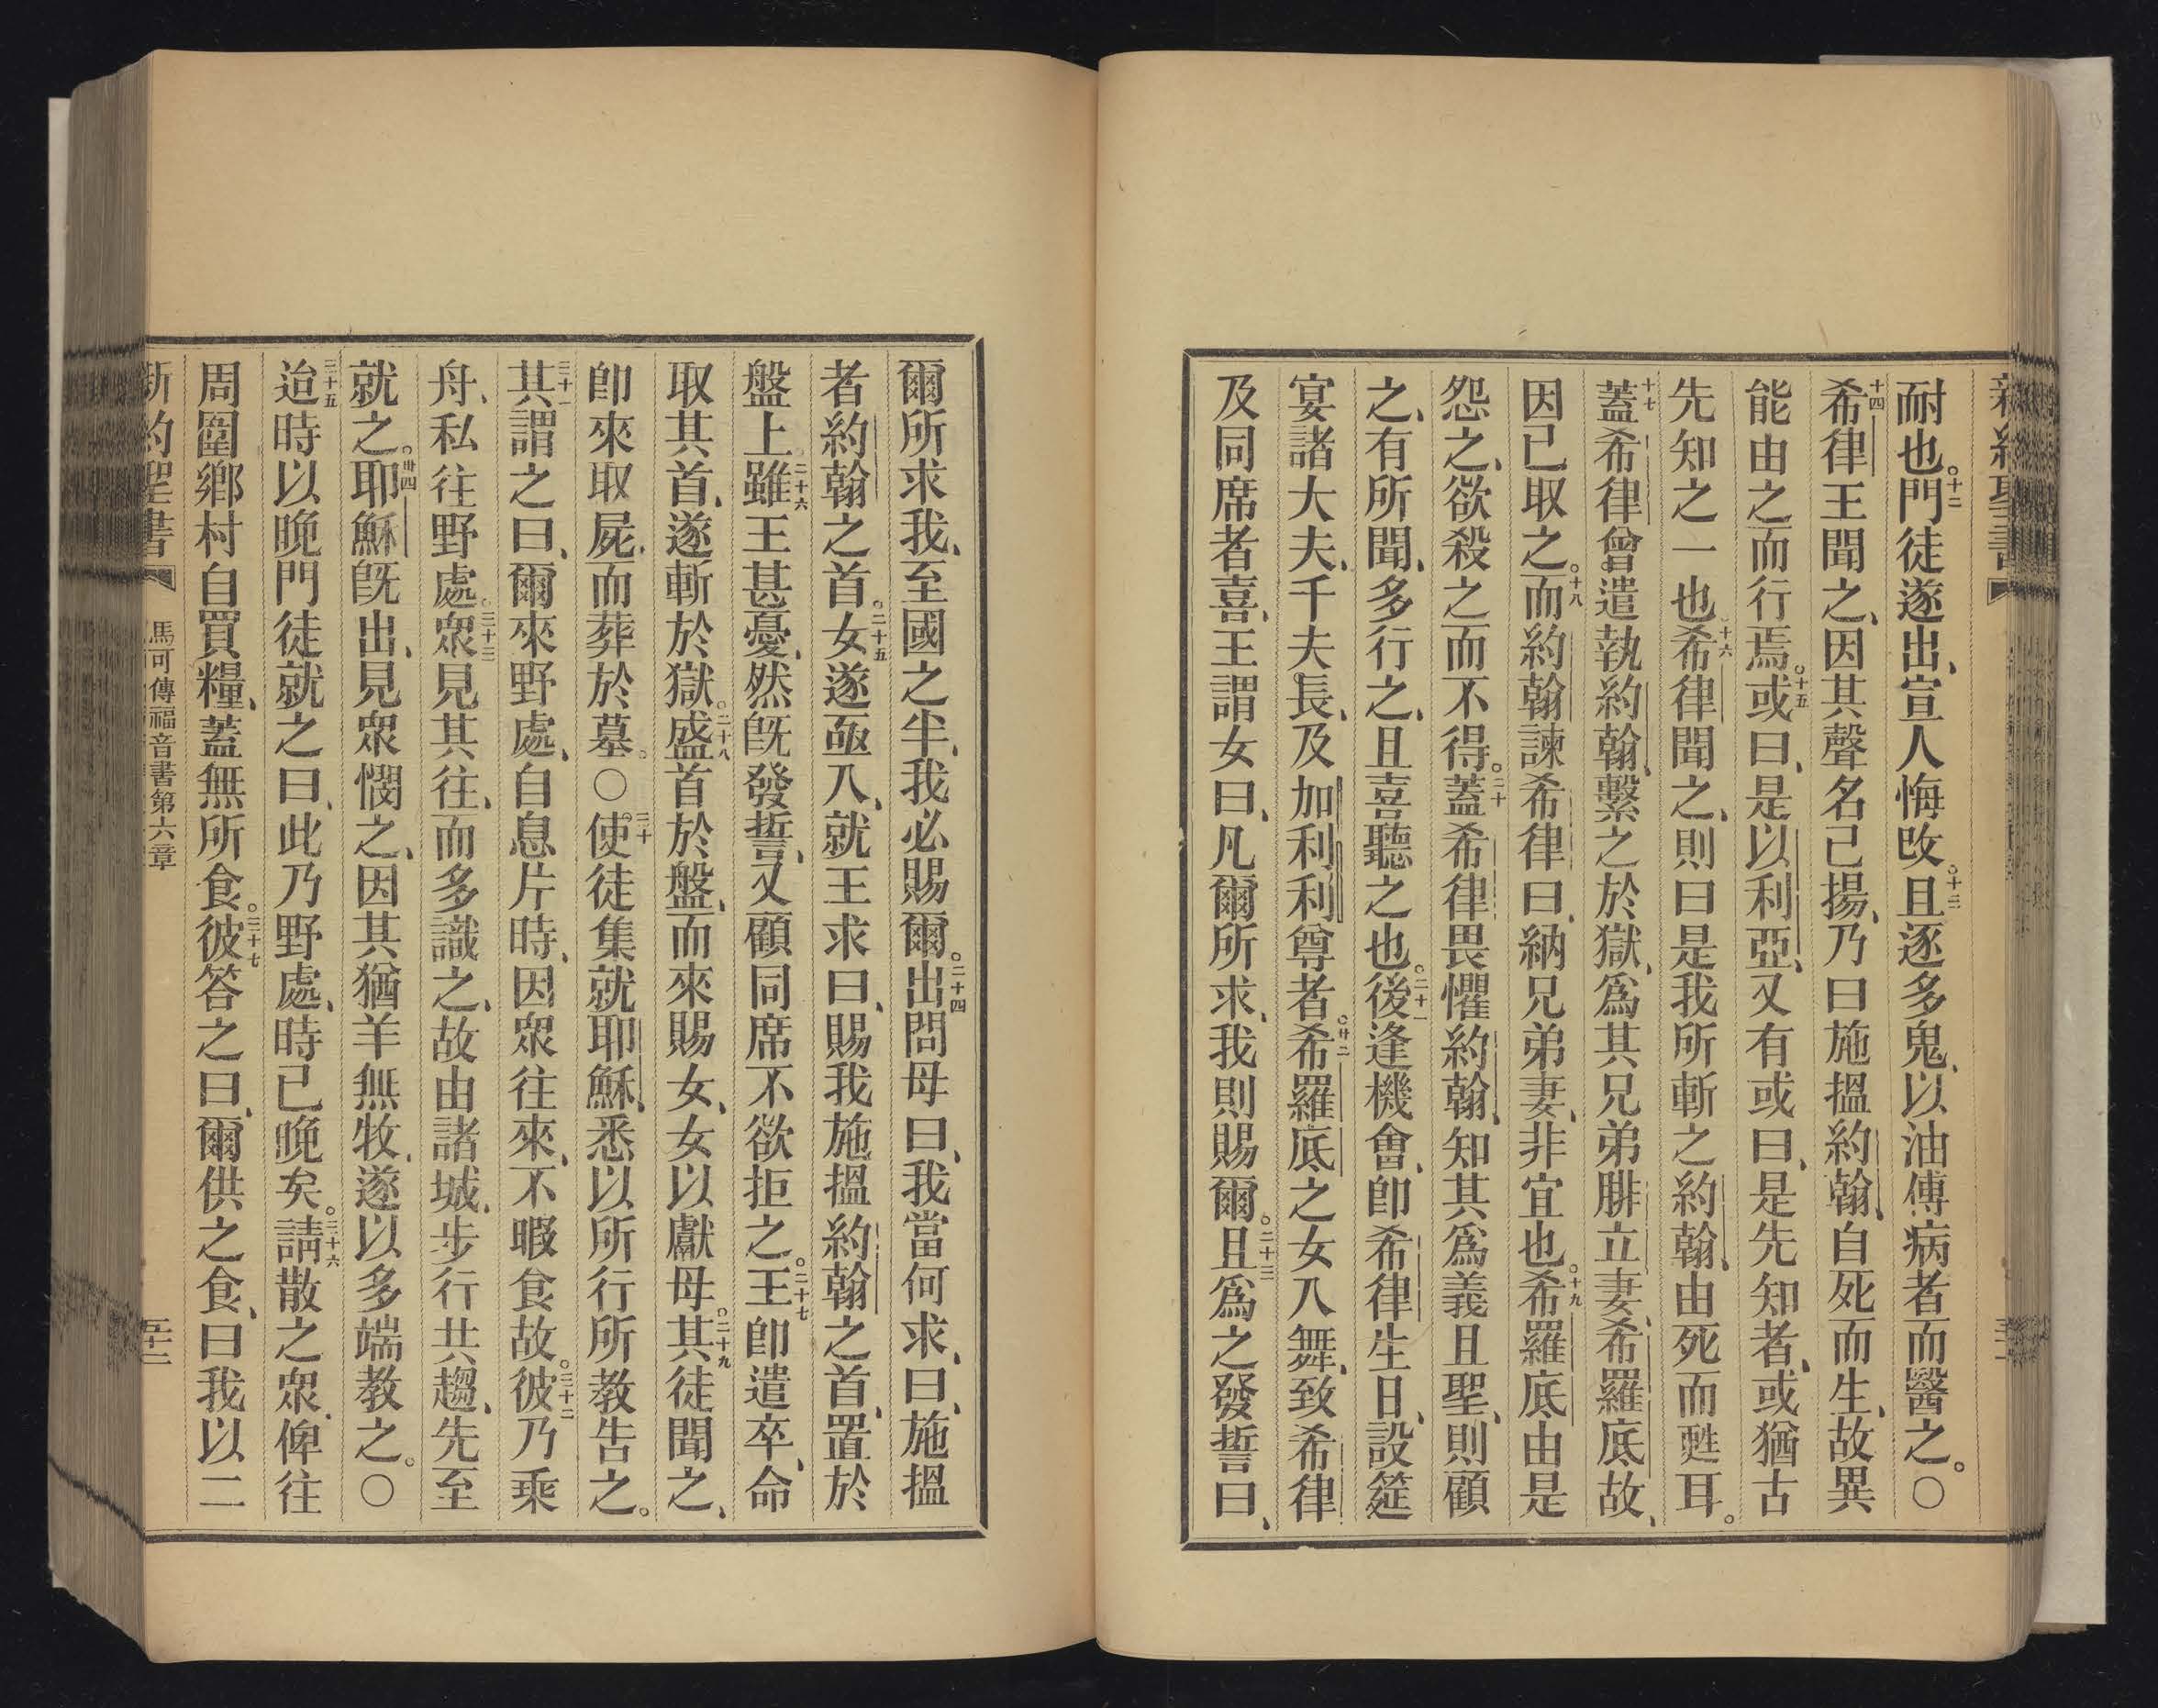 新約聖書
耐也。十二門徒遂出、宣人悔改。十三且逐多鬼、以油傅病者而醫之。〇
十四希律王聞之、因其聲名已揚、乃曰施搵約翰、自死而生、故異
能由之而行焉。十五或曰、是以利亞、又有或曰、是先知者、或猶古
先知之一也。十六希律聞之、則曰是我所斬之約翰、由死而甦耳。
十七蓋希律曾遣執約翰、繫之於獄、爲其兄弟腓立妻、希羅底故、
因已取之。十八而約翰諫希律曰、納兄弟妻、非宜也。十九希羅底由是
怨之、欲殺之而不得。二十蓋希律畏懼約翰、知其爲義且聖、則顧
之、有所聞、多行之、且喜聽之也。二十一後逢機會、卽希律生日、設筵
宴諸大夫、千夫長、及加利利尊者。廿二希羅底之女入舞、致希律
及同席者喜、王謂女曰、凡爾所求、我則賜爾。二十三且爲之發誓曰、
爾所求我、至國之半、我必賜爾。二十四出問母曰、我當何求、曰、施搵
者約翰之首。二十五女遂亟入、就王求曰、賜我施搵約翰之首、置於
盤上。二十六雖王甚憂、然旣發誓、又顧同席不欲拒之。二十七王卽遣卒、命
取其首、遂斬於獄。二十八盛首於盤、而來賜女、女以獻母。二十九其徒聞之、
卽來取屍、而葬於墓。〇三十使徒集就耶穌、悉以所行所教告之。
三十一其謂之曰、爾來野處、自息片時、因衆往來、不暇食故。三十二彼乃乘
舟、私往野處。三十三衆見其往、而多識之、故由諸城、步行共趨、先至
就之。卅四耶穌旣出、見衆憫之、因其猶羊無牧、遂以多端教之。〇
三十五迨時以晚門徒就之曰、此乃野處、時已晚矣。三十六請散之衆、俾往
周圍鄉村自買糧、蓋無所食。三十七彼答之曰、爾供之食、曰我以二
新約聖書 馬可傳福音書第六章